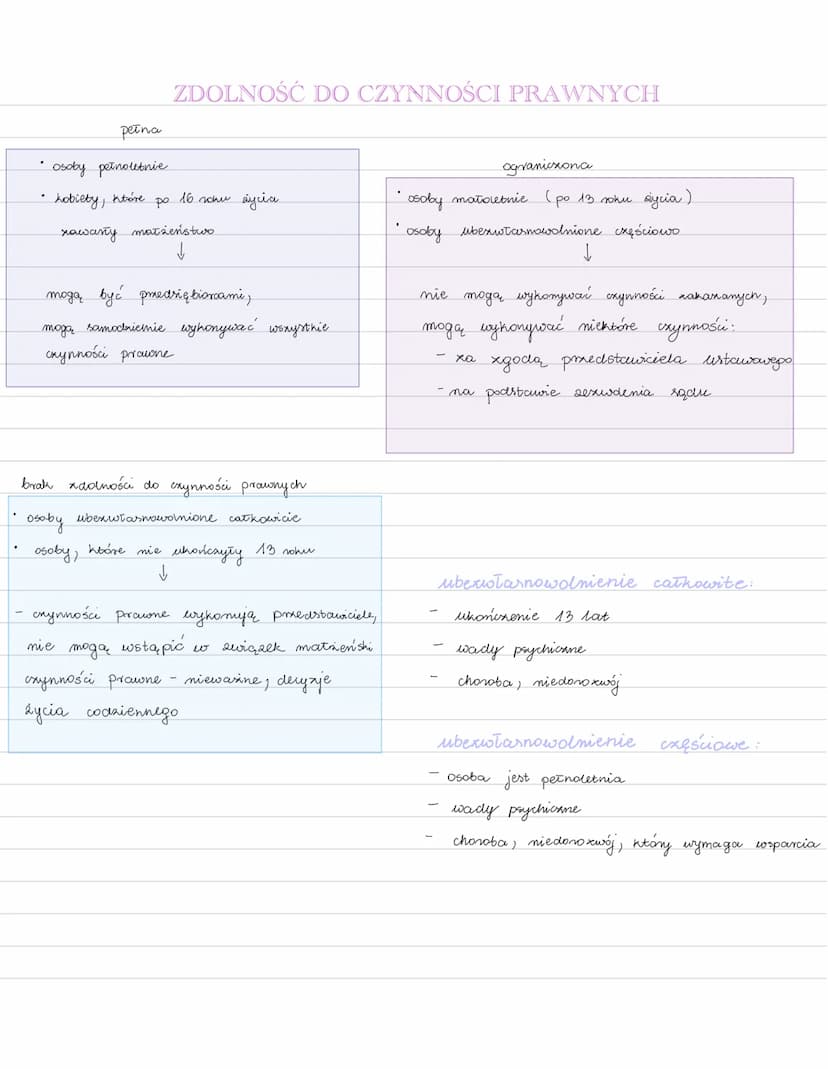 ZDOLNOŚĆ DO CZYNNOŚCI PRAWNYCH
pełna
• osoby pełnoletnie
• kobiety, które po 16 roku życia
zawarły małżeństwo
↓
mogą być przedsiębiorcami,
mogą samodzielnie wykonywać wszystkie
czynności prawne
ograniczona
• osoby małoletnie (po 13 roku życia)
• osoby ubezwłasnowolnione częściowo
↓
nie mogą wykonywać czynności zakazanych,
mogą wykonywać niektóre czynności:
- za zgodą przedstawiciela ustawowego
- na podstawie zezwolenia sądu
brak zdolności do czynności prawnych
• osoby ubezwłasnowolnione całkowicie
• osoby, które nie ukończyły 13 roku
↓
- czynności prawne wykonują przedstawiciele,
nie mogą wstąpić w związek małżeński
czynności prawne - nieważne, decyzje
życia codziennego
ubezwłasnowolnienie całkowite:
- ukończenie 13 lat
- wady psychiczne
- choroba, niedorozwój
ubezwłasnowolnienie częściowe:
- osoba jest pełnoletnia
- wady psychiczne
- choroba, niedorozwój, który wymaga wsparcia